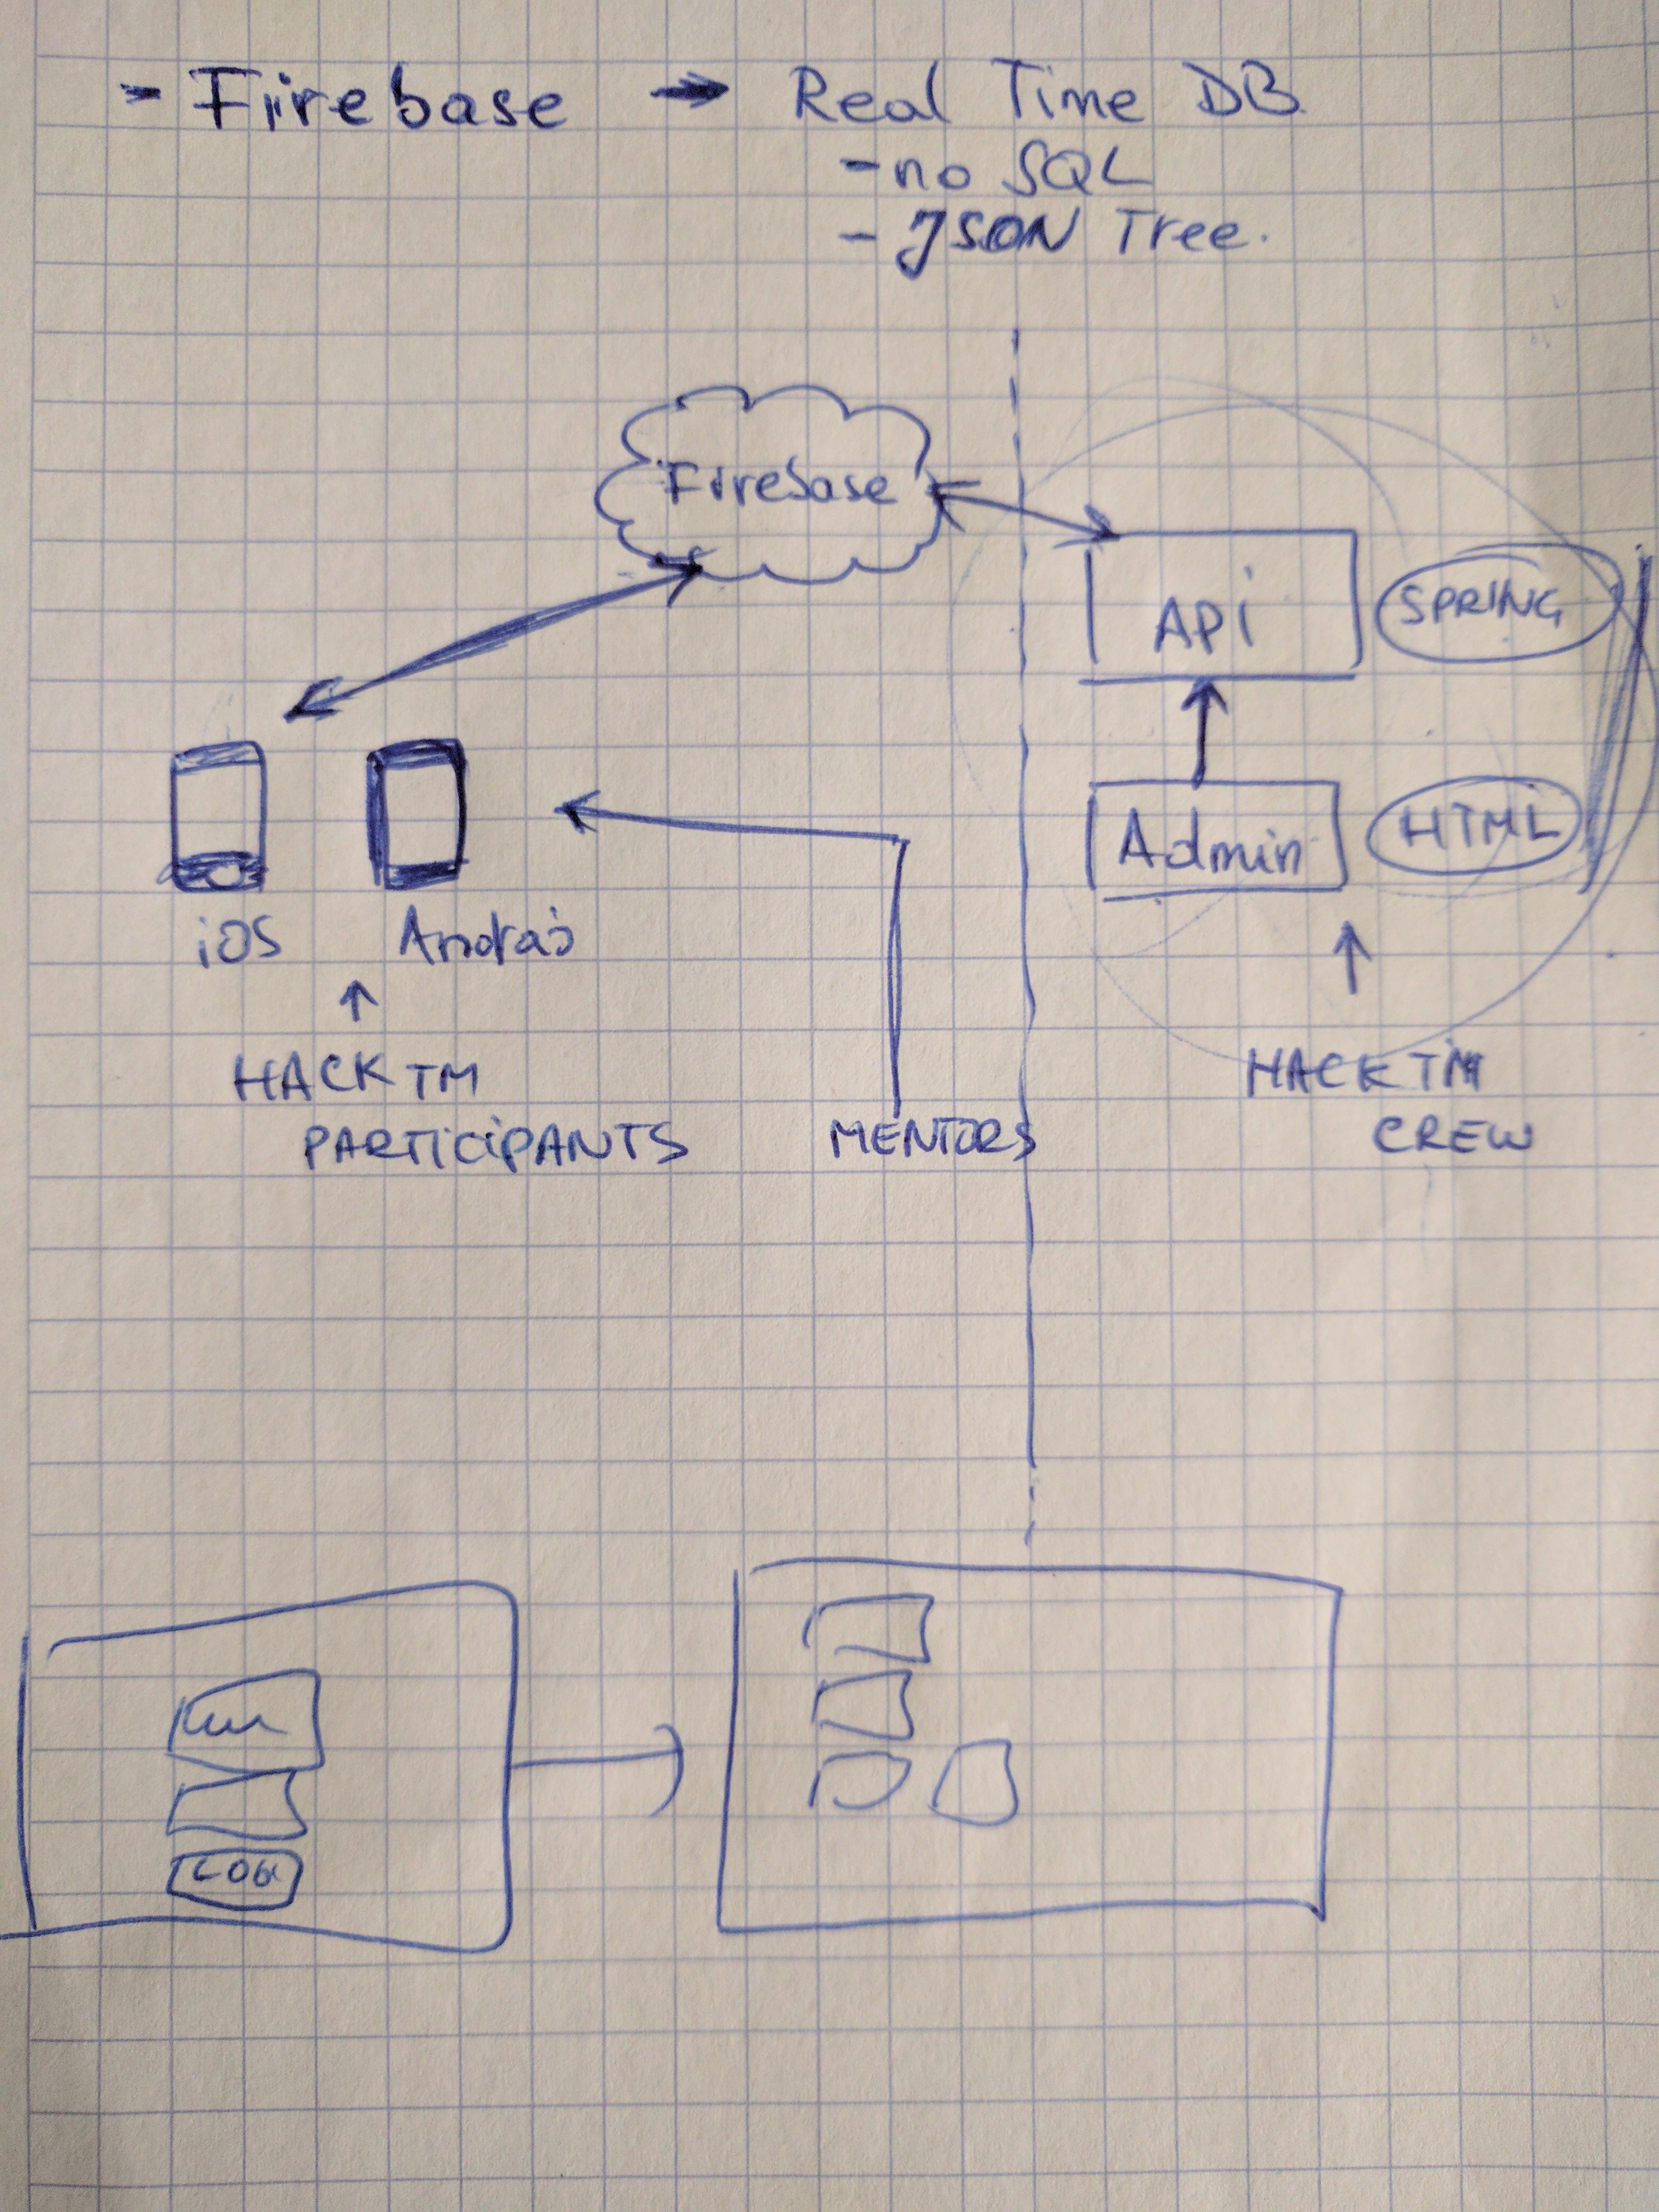 - Firebase → Real Time DB
- no SQL
- JSON Tree.
Firebase
API
SPRING
Admin
HTML
iOS
Android
HACK TM
PARTICIPANTS
MENTORS
HACK TM
CREW
LOG